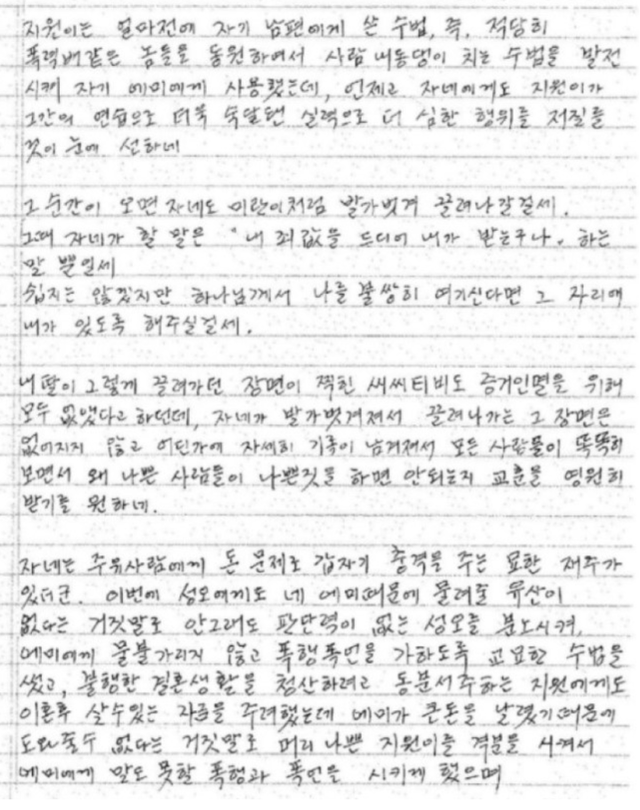 지원이는 얼마전에 자기 남편에게 쓴 수법, 즉, 적당히
폭력배같은 놈들을 동원하여서 사람 내동댕이 치는 수법을 발전
시켜 자기 에미에게 사용했는데, 언제고 자네에게도 지원이가
그간의 연습으로 더욱 숙달된 실력으로 더 심한 행위를 저질를
것이 눈에 선하네
그 순간이 오면 자네도 미란이처럼 발가벗겨 끌려나갈걸세.
그때 자네가 할 말은 "내 죄값을 드디어 내가 받는구나" 하는
말 뿐일세
쉽지는 않겠지만 하나님께서 나를 불쌍히 여기신다면 그 자리에
내가 있도록 해주실걸세.
내 딸이 그렇게 끌려가던 장면이 찍힌 씨씨티비도 증거인멸을 위해
모두 없앴다고 하던데, 자네가 발가벗겨져서 끌려나가는 그 장면은
없어지지 않고 어딘가에 자세히 기록이 남겨져서 모든 사람들이 똑똑히
보면서 왜 나쁜 사람들이 나쁜짓을 하면 안되는지 교훈을 영원히
받기를 원하네.
자네는 주위사람에게 돈 문제로 갑자기 충격을 주는 묘한 재주가
있더군. 이번에 성오에게도 네 에미때문에 물려줄 유산이
없다는 거짓말로 안그래도 판단력이 없는 성오를 분노시켜,
에미에게 물불가리지 않고 폭행폭언을 가하도록 교묘한 수법을
썼고, 불행한 결혼생활을 청산하려고 동분서주하는 지원에게도
이혼후 살수있는 자금을 주려했는데 에미가 큰돈을 날렸기 때문에
도와줄수 없다는 거짓말로 머리 나쁜 지원이를 격분을 시켜서
에미에게 말도 못할 폭행과 폭언을 시키게 했으며